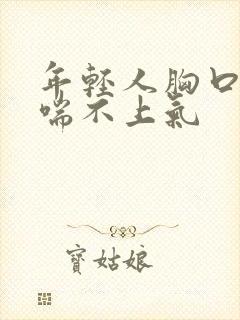 年輕人胸口
喘不上氣
寶姑娘